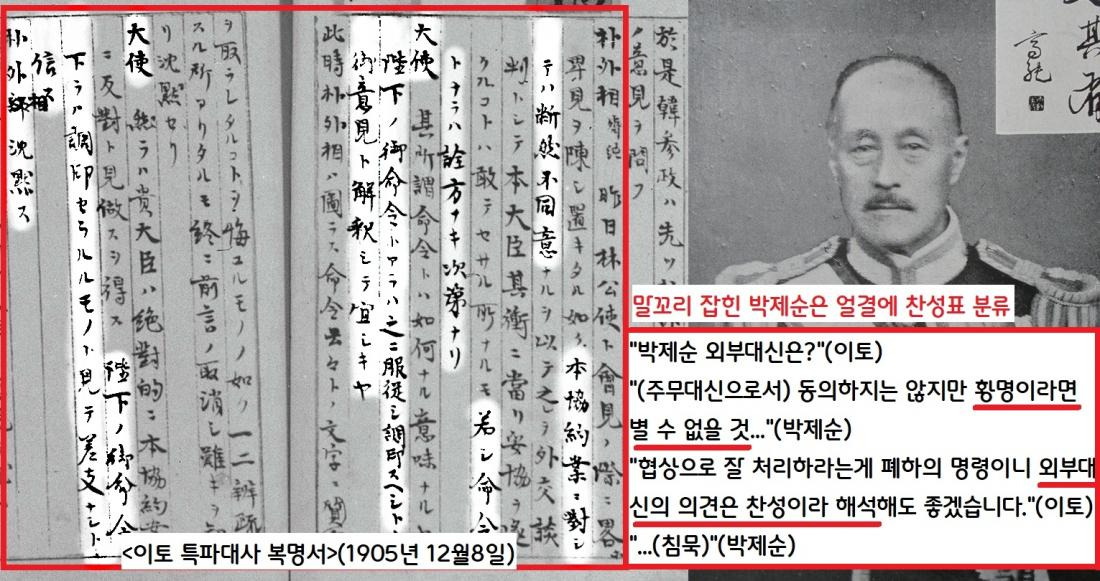 於是韓參政ハ先ツ
ノ意見ヲ問フ
朴外相齊純 昨日林公使ト會見ノ際ニ畧
卑見ヲ陳シ置キタル如ク本協約案ニ對シ
テハ斷然不同意ナルヲ以テ之ヲ外交談
判トシテ本大臣其衝ニ當リ妥協ヲ遂
クルコトハ敢テセサル所ナルモ若シ命令
トナラハ詮方ナキ次第ナリ
大使 其所謂命令トハ如何ナル意味ナルカ
陛下ノ御命令トアラハ之ニ服從シ調印スヘシト
御意見ト解釈シテ宜シキヤ
此時朴外相ハ圖ラス命令云々トノ文字ニ質
ヲ取ラレタルコトヲ悔ユルモノノ如ク一二辨疏
スル所アリタルモ終ニ前言ノ取消シ難キヲ知
リ沈黙セリ
大使 然ラハ貴大臣ハ絶對的ニ本協約案
ニ反對ト見做スヲ得ス 陛下ノ御命令
下ラハ調印セラルルモノト見テ差支ナシト
信
朴外部 沈黙ス
<이토 특파대사 복명서>(1905년 12월8일)
말꼬리 잡힌 박제순은 얼결에 찬성표 분류
"박제순 외부대신은?"(이토)
"(주무대신으로서) 동의하지는 않지만 황명이라면
별 수 없을 것..."(박제순)
"협상으로 잘 처리하라는게 폐하의 명령이니 외부대
신의 의견은 찬성이라 해석해도 좋겠습니다."(이토)
"...(침묵)"(박제순)